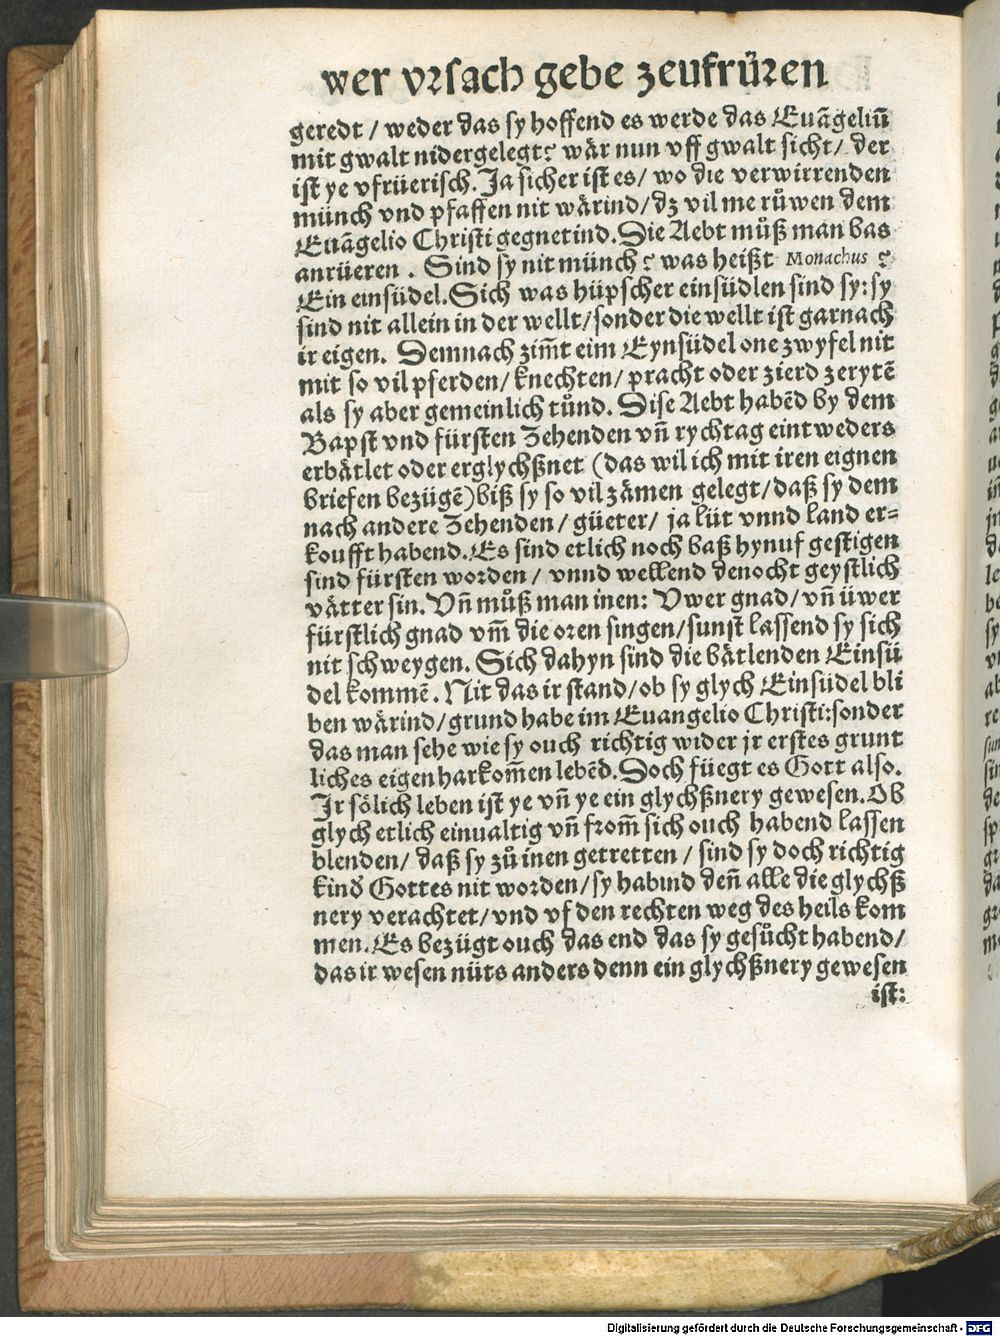 wer vrsach gebe zeufrüren
geredt / weder das sy hoffend es werde das Euãgeliũ
mit gwalt nidergelegt? wår nun vff gwalt sicht/ der
ist ye vfrüerisch. Ja sicher ist es/ wo die verwirrenden
münch vnd pfaffen nit wårind/dz vil me růwen dem
Euãgelio Christi gegnetind. Die Aebt můß man bas
anrüeren . Sind sy nit münch? was heißt Monachus ?
Ein einsüdel. Sich was hüpscher einsüdlen sind sy: sy
sind nit allein in der wellt/sonder die wellt ist garnach
ir eigen. Demnach zim̃t eim Eynsüdel one zwyfel nit
mit so vil pferden/ knechten/ pracht oder zierd zerytẽ
als sy aber gemeinlich tůnd. Dise Aebt habẽd by dem
Bapst vnd fürsten Zehenden vñ rychtag eintweders
erbåtlet oder erglychßnet (das wil ich mit iren eignen
briefen bezügẽ) biß sy so vil zåmen gelegt/daß sy dem
nach andere Zehenden/ güeter/ ja lüt vnnd land er=
koufft habend. Es sind etlich noch baß hynuf gestigen
sind fürsten worden / vnnd wellend denocht geystlich
våtter sin. Vñ můß man inen: Vwer gnad/ vñ üwer
fürstlich gnad vm̃ die oren singen/sunst lassend sy sich
nit schweygen. Sich dahyn sind die båtlenden Einsü
del kommẽ. Nit das ir stand/ob sy glych Einsüdel bli
ben wårind/grund habe im Euangelio Christi:sonder
das man sehe wie sy ouch richtig wider jr erstes grunt
liches eigen harkom̃en lebẽd. Doch füegt es Gott also.
Jr sőlich leben ist ye vñ ye ein glychßnery gewesen. Ob
glych etlich einualtig vñ from̃ sich ouch habend lassen
blenden/ daß sy zů inen getretten / sind sy doch richtig
kind Gottes nit worden/sy habind deñ alle die glychß
nery verachtet/vnd vf den rechten weg des heils kom
men. Es bezügt ouch das end das sy gesůcht habend/
das ir wesen nüts anders denn ein glychßnery gewesen
ist:
Digitalisierung gefördert durch die Deutsche Forschungsgemeinschaft - DFG